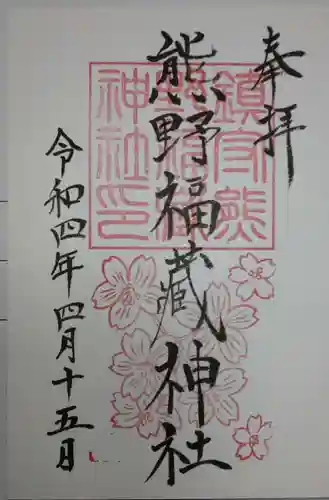 奉拝
熊野福藏神社
令和四年四月十五日
鎮守熊野福藏神社印